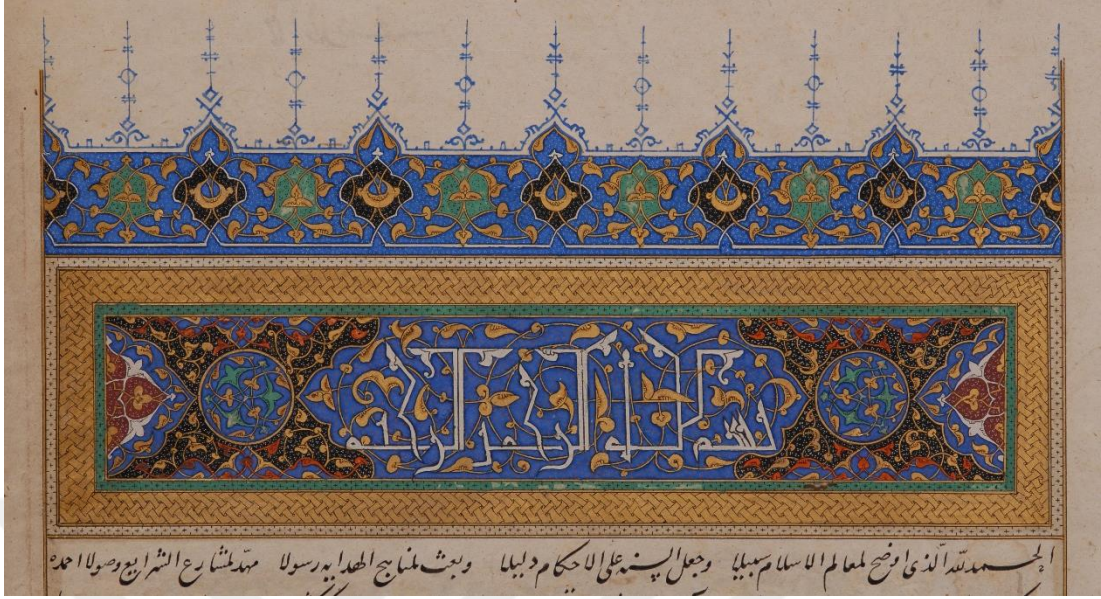 بسم الله الرحمن الرحيم
الحمد لله الذى اوضح لمعالم الاسلام سبيلا وجعل السنة على الاحكام دليلا وبعث لمناهج الهداية رسولا مهد لمشارع الشرايع وصولا احمده